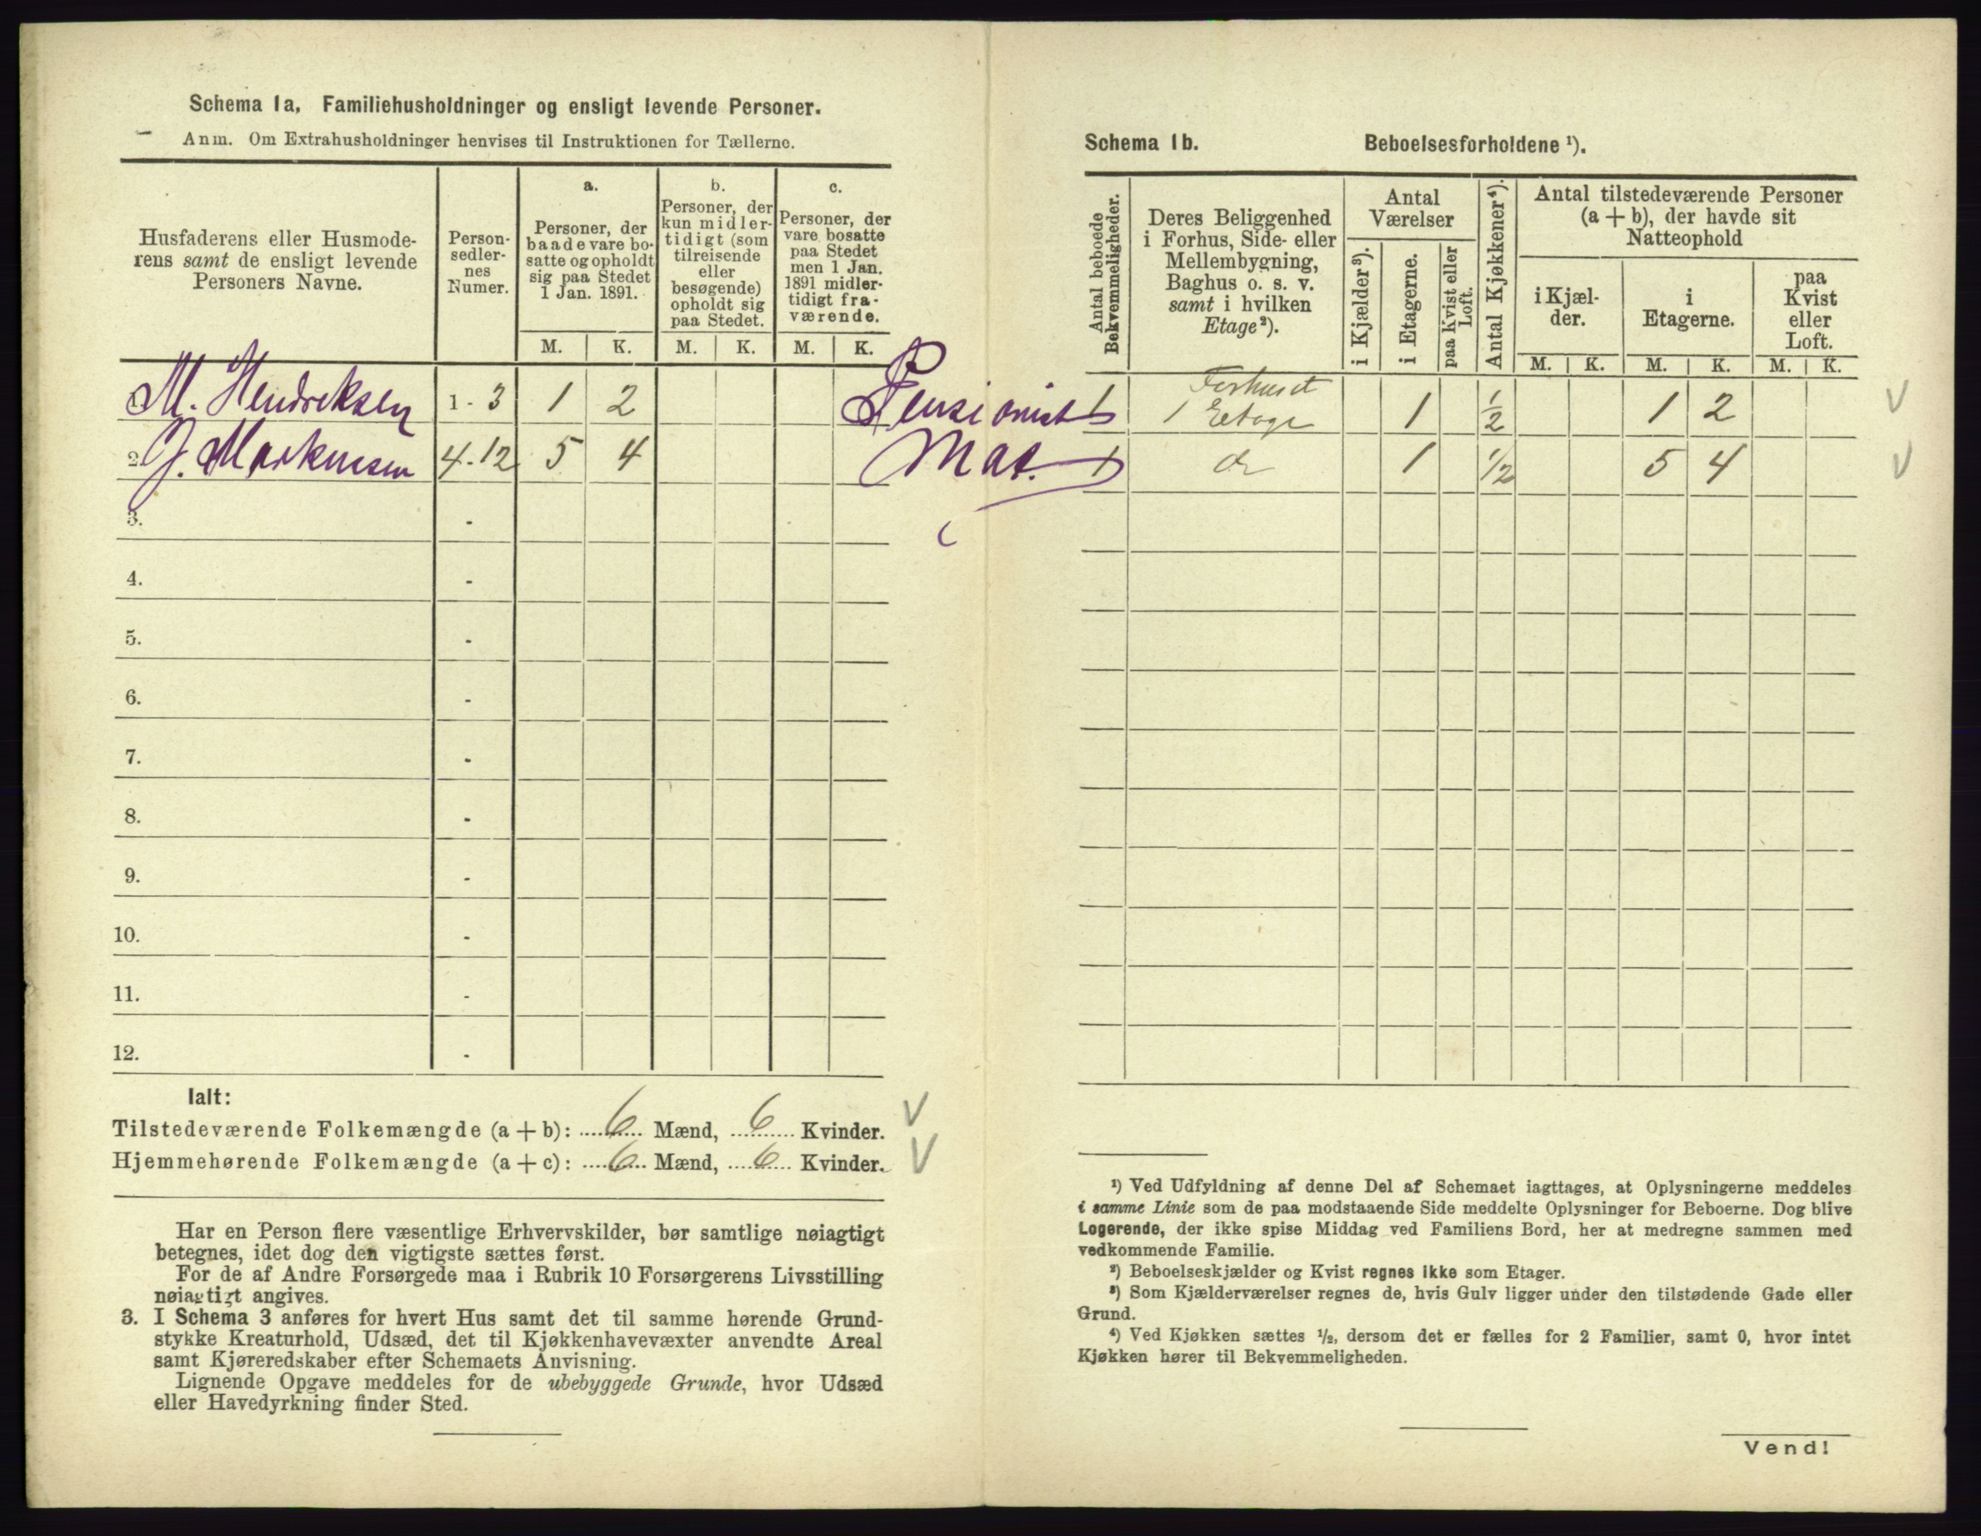 Schema 1a, Familiehusholdninger og ensligt levende Personer.
Anm. Om Extrahusholdninger henvises til Instruktionen for Tællerne.
Husfaderens eller Husmode-
rens samt de ensligt levende
Personers Navne.
Person-
sedler-
nes
Numer.
a.
Personer, der
baade vare bo-
satte og opholdt
sig paa Stedet
1 Jan. 1891.
b.
Personer, der
kun midler-
tidigt (som
tilreisende
eller
besøgende)
opholdt sig
paa Stedet.
c.
Personer, der
vare bosatte
paa Stedet
men 1 Jan.
1891 midler-
tidigt fra-
værende.
M. K. M. K. M. K.
M. Hendriksen 1 - 3 1 2 Pensionist
2. J. Markussen 4 - 12 5 4 Mat.
3. -
4. -
5. -
6. -
7. -
8. -
9. -
10. -
11. -
12. -
Ialt:
Tilstedeværende Folkemængde (a + b): 6 Mænd, 6 Kvinder. V
Hjemmehørende Folkemængde (a + c): 6 Mænd, 6 Kvinder. V
Har en Person flere væsentlige Erhvervskilder, bør samtlige nøiagtigt
betegnes, idet dog den vigtigste sættes først.
For de af Andre Forsørgede maa i Rubrik 10 Forsørgerens Livsstilling
nøiagtigt angives.
3. I Schema 3 anføres for hvert Hus samt det til samme hørende Grund-
stykke Kreaturhold, Udsæd, det til Kjøkkenhavevæxter anvendte Areal
samt Kjøreredskaber efter Schemaets Anvisning.
Lignende Opgave meddeles for de ubebyggede Grunde, hvor Udsæd
eller Havedyrkning finder Sted.
Schema 1b. Beboelsesforholdene ¹).
Antal beboede
Bekvemmeligheder.
Deres Beliggenhed
i Forhus, Side- eller
Mellembygning,
Baghus o. s. v.
samt i hvilken
Etage²).
Antal
Værelser
i Kjælder³).
i Etagerne.
paa Kvist eller
Loft.
Antal Kjøkkener⁴).
Antal tilstedeværende Personer
(a + b), der havde sit
Natteophold
i Kjæl-
der.
i
Etagerne.
paa
Kvist
eller
Loft.
M. K. M. K. M. K.
1 Forhuset
1 Etage 1 ½ 1 2 V
1 do 1 ½ 5 4 V
¹) Ved Udfyldning af denne Del af Schemaet iagttages, at Oplysningerne meddeles
i samme Linie som de paa modstaaende Side meddelte Oplysninger for Beboerne. Dog blive
Logerende, der ikke spise Middag ved Familiens Bord, her at medregne sammen med
vedkommende Familie.
²) Beboelseskjælder og Kvist regnes ikke som Etager.
³) Som Kjælderværelser regnes de, hvis Gulv ligger under den tilstødende Gade eller
Grund.
⁴) Ved Kjøkken sættes ½, dersom det er fælles for 2 Familier, samt 0, hvor intet
Kjøkken hører til Bekvemmeligheden.
Vend!